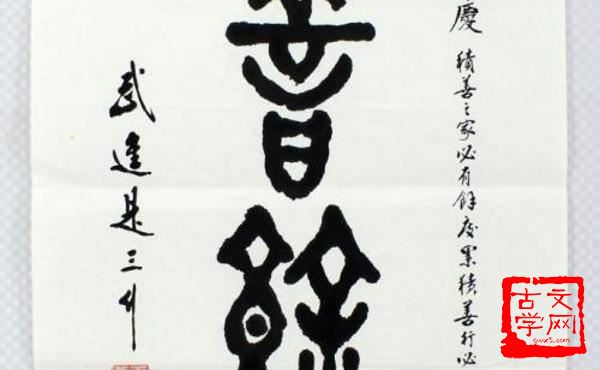 慶 積善之家必有餘慶累積善行必
善餘
武進是三
古文
学网
gwx5.com